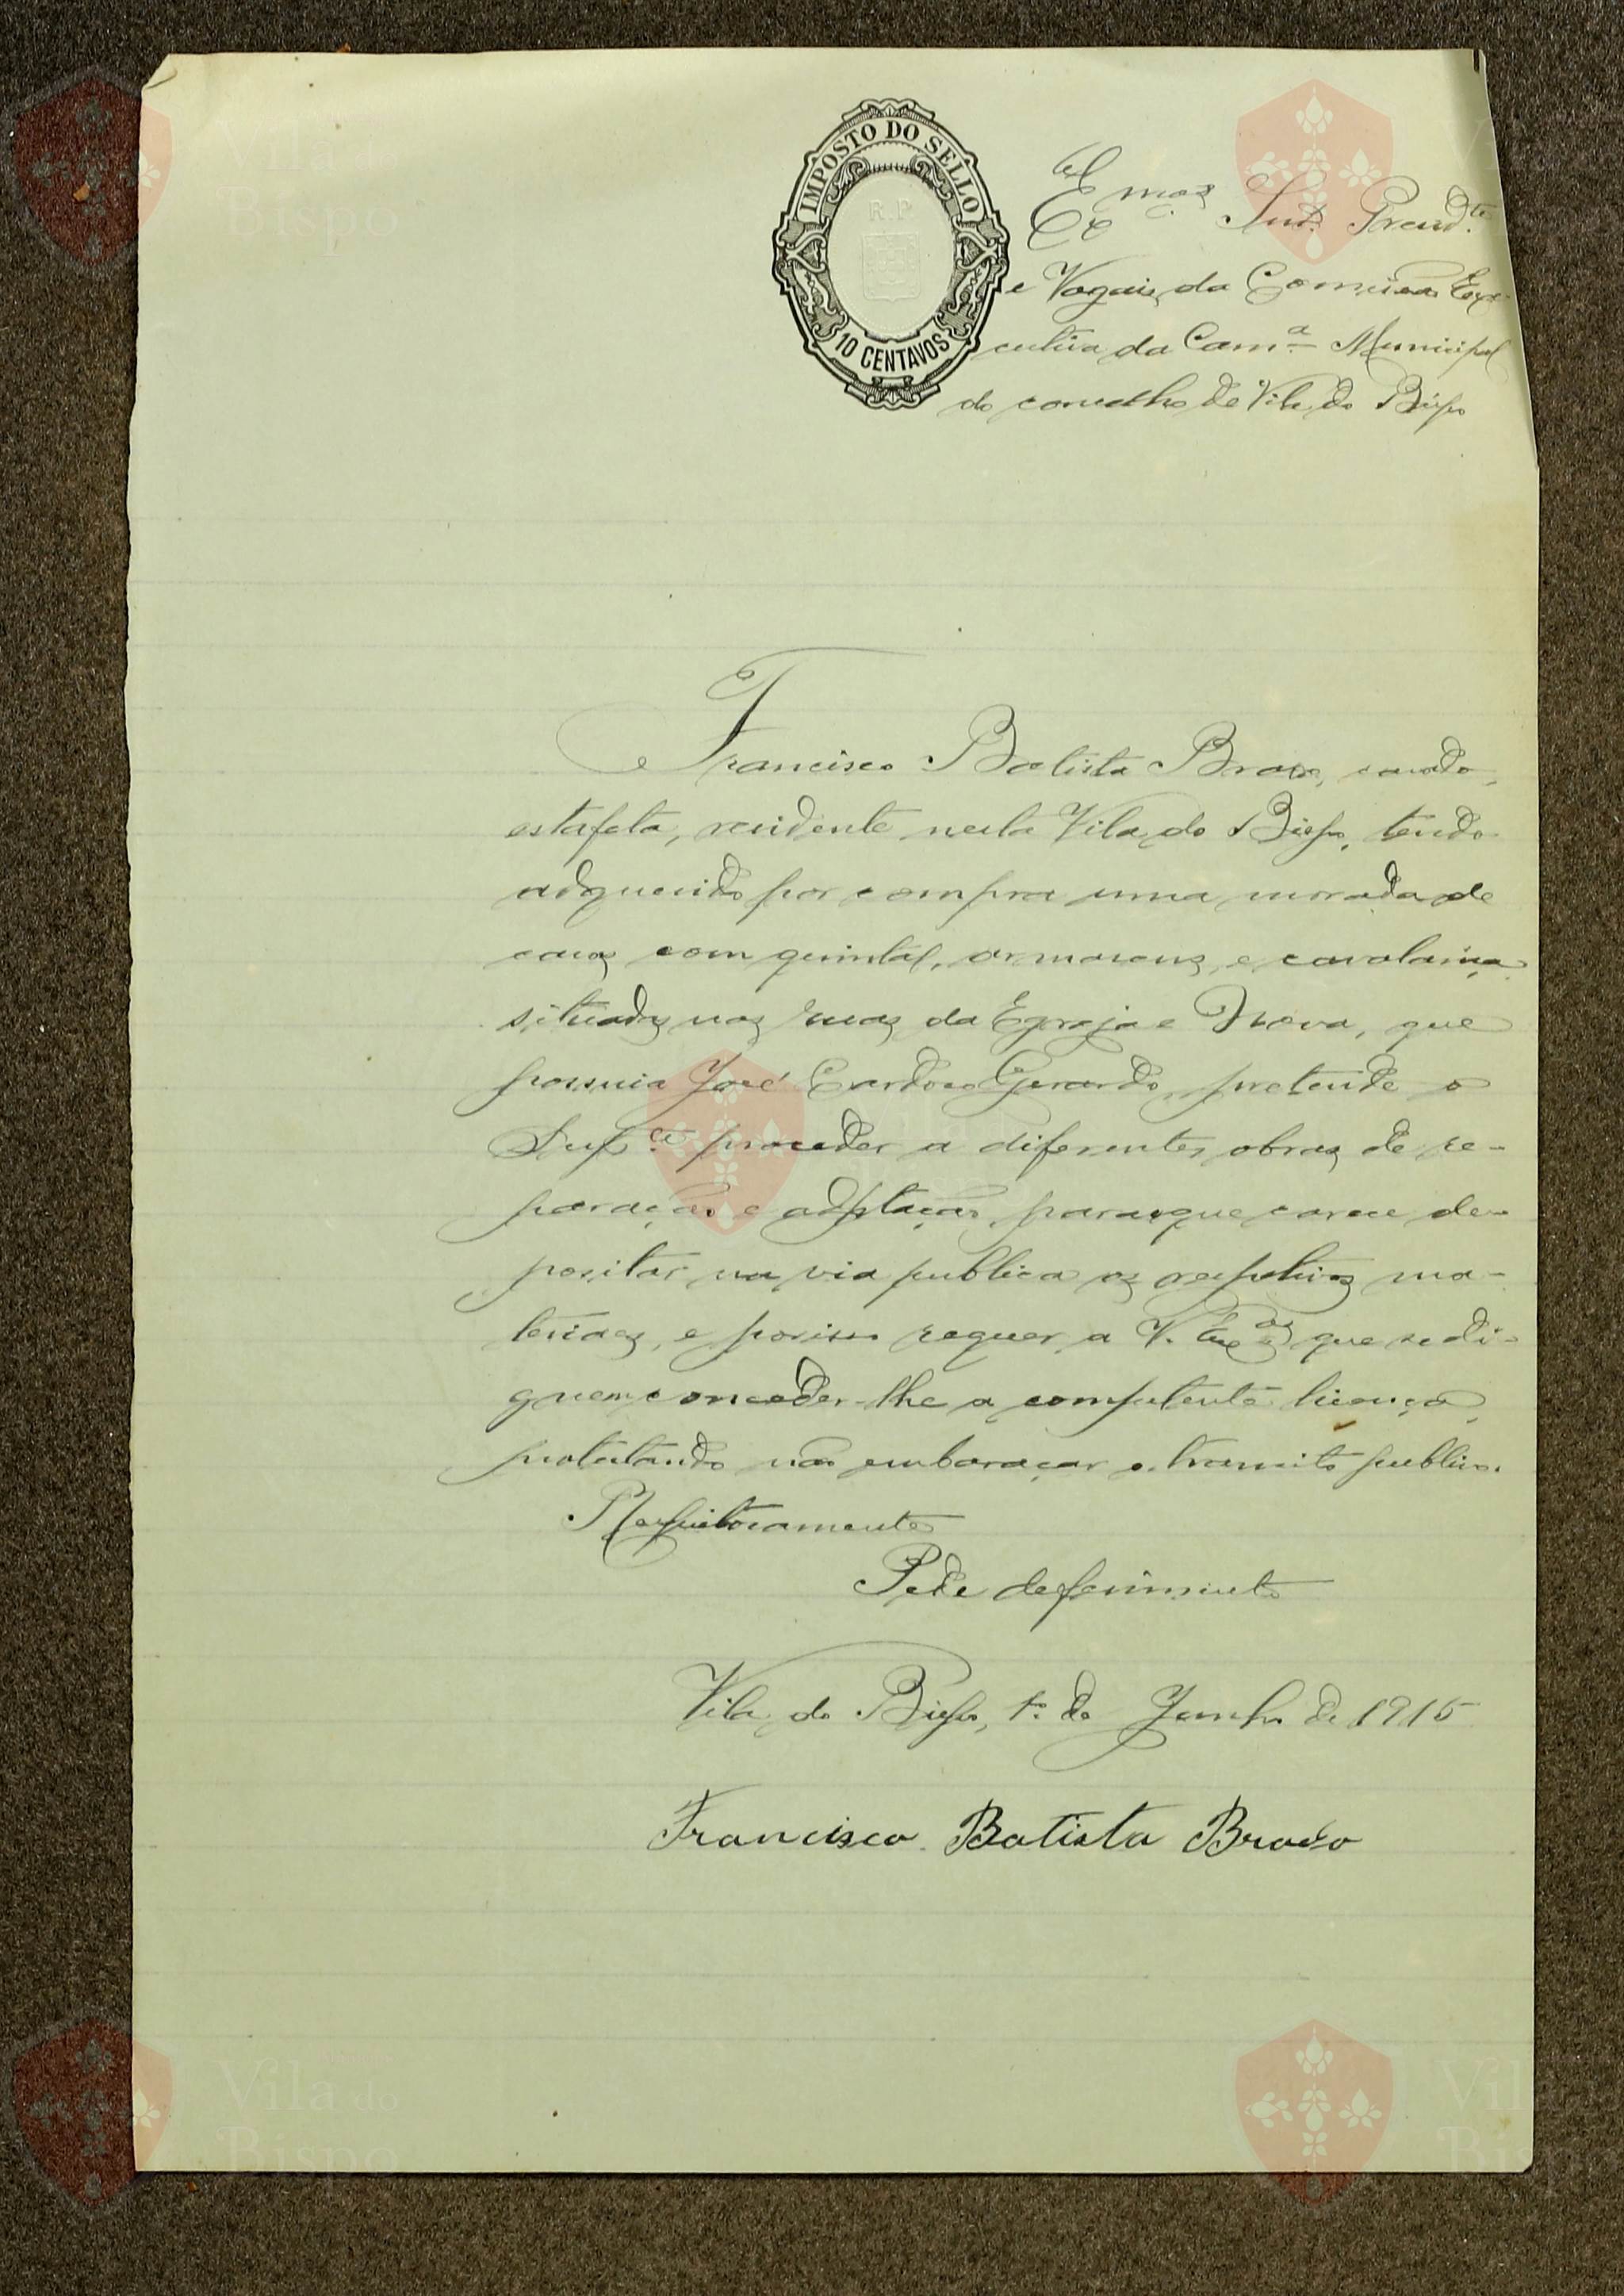 IMPOSTO DO SELLO
R.P.
10 CENTAVOS
Ex.mos Snrs. Presid.te
e Vogais da Comissão Exe-
cutiva da Cam.a Municipal
do concelho de Vila do Bispo
Francisco Batista Bravo, casado,
estafeta, residente nesta Vila do Bispo, tendo
adquerido por compra uma morada de
casas com quintal, armazens, e cavalariça
situadas nas ruas da Egreja e Nova, que
possuia José Cardoso Gerardo, pretende o
Sup.ce proceder a diferentes obras de re-
paração e adptação, para o que carece de-
positar na via publica os respetivos ma-
teriaes, e porisso requer a V. Ex.as que se di-
guem conceder-lhe a competente licença,
protestando não embaraçar o transito publico.
Respeitosamente
Pede defferimento
Vila do Bispo, 1º de Junho de 1915
Francisco Batista Bravo
Vila do
Bispo